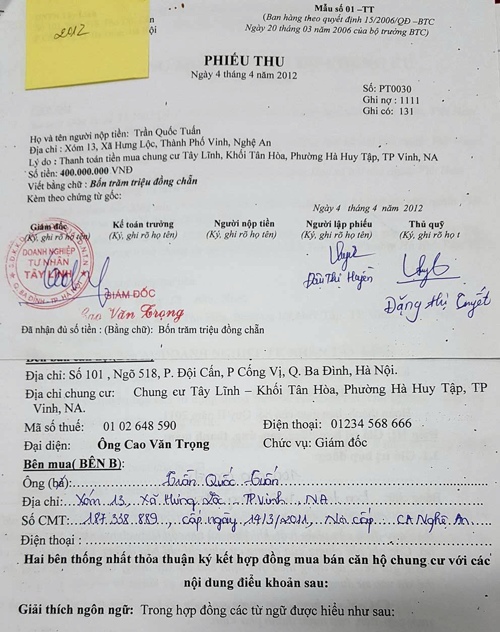 2012
Mẫu số 01 –TT
(Ban hành theo quyết định 15/2006/QĐ –BTC
Ngày 20 tháng 03 năm 2006 của bộ trưởng BTC)
PHIẾU THU
Ngày 4 tháng 4 năm 2012
Số: PT0030
Ghi nợ : 1111
Ghi có: 131
Họ và tên người nộp tiền: Trần Quốc Tuấn
Địa chỉ : Xóm 13, Xã Hưng Lộc, Thành Phố Vinh, Nghệ An
Lý do : Thanh toán tiền mua chung cư Tây Lĩnh, Khối Tân Hòa, Phường Hà Huy Tập, TP Vinh, NA
Số tiền: 400.000.000 VNĐ
Viết bằng chữ : Bốn trăm triệu đồng chẵn
Kèm theo chứng từ gốc:
Ngày 4 tháng 4 năm 2012
Giám đốc Kế toán trưởng Người nộp tiền Người lập phiếu Thủ quỹ
(Ký, ghi rõ họ tên) (Ký, ghi rõ họ tên) (Ký, ghi rõ họ tên) (Ký, ghi rõ họ tên) (Ký, ghi rõ họ t
DOANH NGHIỆP
TƯ NHÂN
TÂY LĨNH
Q. BA ĐÌNH - TP. HÀ NỘI
GIÁM ĐỐC
Cao Văn Trọng
Đậu Thị Huyền
Đặng Thị Tuyết
Đã nhận đủ số tiền : (Bằng chữ): Bốn trăm triệu đồng chẵn
Địa chỉ: Số 101 , Ngõ 518, P. Đội Cấn, P Cống Vị, Q. Ba Đình, Hà Nội.
Địa chỉ chung cư: Chung cư Tây Lĩnh – Khối Tân Hòa, Phường Hà Huy Tập, TP
Vinh, NA.
Mã số thuế: 01 02 648 590 Điện thoại: 01234 568 666
Đại diện: Ông Cao Văn Trọng Chức vụ: Giám đốc
Bên mua( BÊN B):
Ông (bà): Trần Quốc Tuấn
Địa chỉ: Xóm 13, Xã Hưng Lộc, TP Vinh, NA
Số CMT: 187.338.889, cấp ngày 14/3/2011, Nơi cấp CA Nghệ An
Điện thoại :
Hai bên thống nhất thỏa thuận ký kết hợp đồng mua bán căn hộ chung cư với các
nội dung điều khoản sau:
Giải thích ngôn ngữ: Trong hợp đồng các từ ngữ được hiểu như sau: